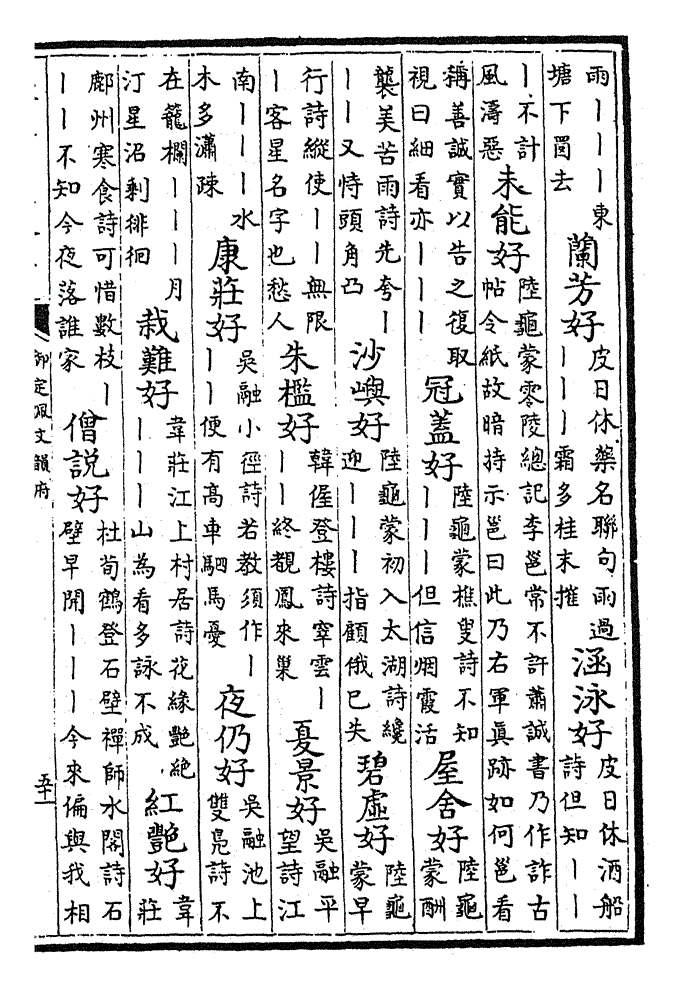 雨丨丨丨東塘下罱去蘭芳好皮日休藥名聯句雨過丨丨丨霜多桂末摧涵泳好皮日休酒船詩但知丨丨
丨不計風濤惡未能好陸龜蒙零陵總記李邕常不許蕭誠書乃作詐古帖令紙故暗持示邕曰此乃右軍真跡如何邕看
稱善誠實以告之復取視曰細看亦丨丨丨冠蓋好陸龜蒙樵叟詩不知丨丨丨但信烟霞活屋舍好陸龜蒙酬
襲美苦雨詩先夸丨丨丨又恃頭角凸沙嶼好陸龜蒙初入太湖詩纔迎丨丨丨指顧俄已失碧虛好陸龜蒙早
行詩縱使丨丨無限丨客星名字也愁人朱檻好韓偓登樓詩窣雲丨丨丨終覩鳳來巢夏景好吳融平望詩江
南丨丨丨水木多瀟疎康莊好吳融小徑詩若教須作丨丨丨便有高車駟馬憂夜仍好吳融池上雙鳧詩不
在籠欄丨丨丨月汀星沼剩徘徊栽難好韋莊江上村居詩花緣艶絶丨丨丨山為看多詠不成紅艶好韋莊
鄜州寒食詩可惜數枝丨丨丨不知今夜落誰家僧説好杜荀鶴登石壁禪師水閣詩石壁早聞丨丨丨今來偏與我相
御定佩文韻府